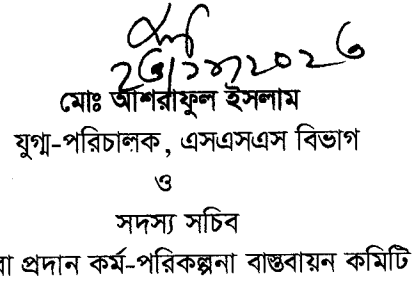 মোঃ আশরাফুল ইসলাম
যুগ্ম-পরিচালক, এসএসএস বিভাগ
ও
সদস্য সচিব
া প্রদান কর্ম-পরিকল্পনা বাস্তবায়ন কমিটি